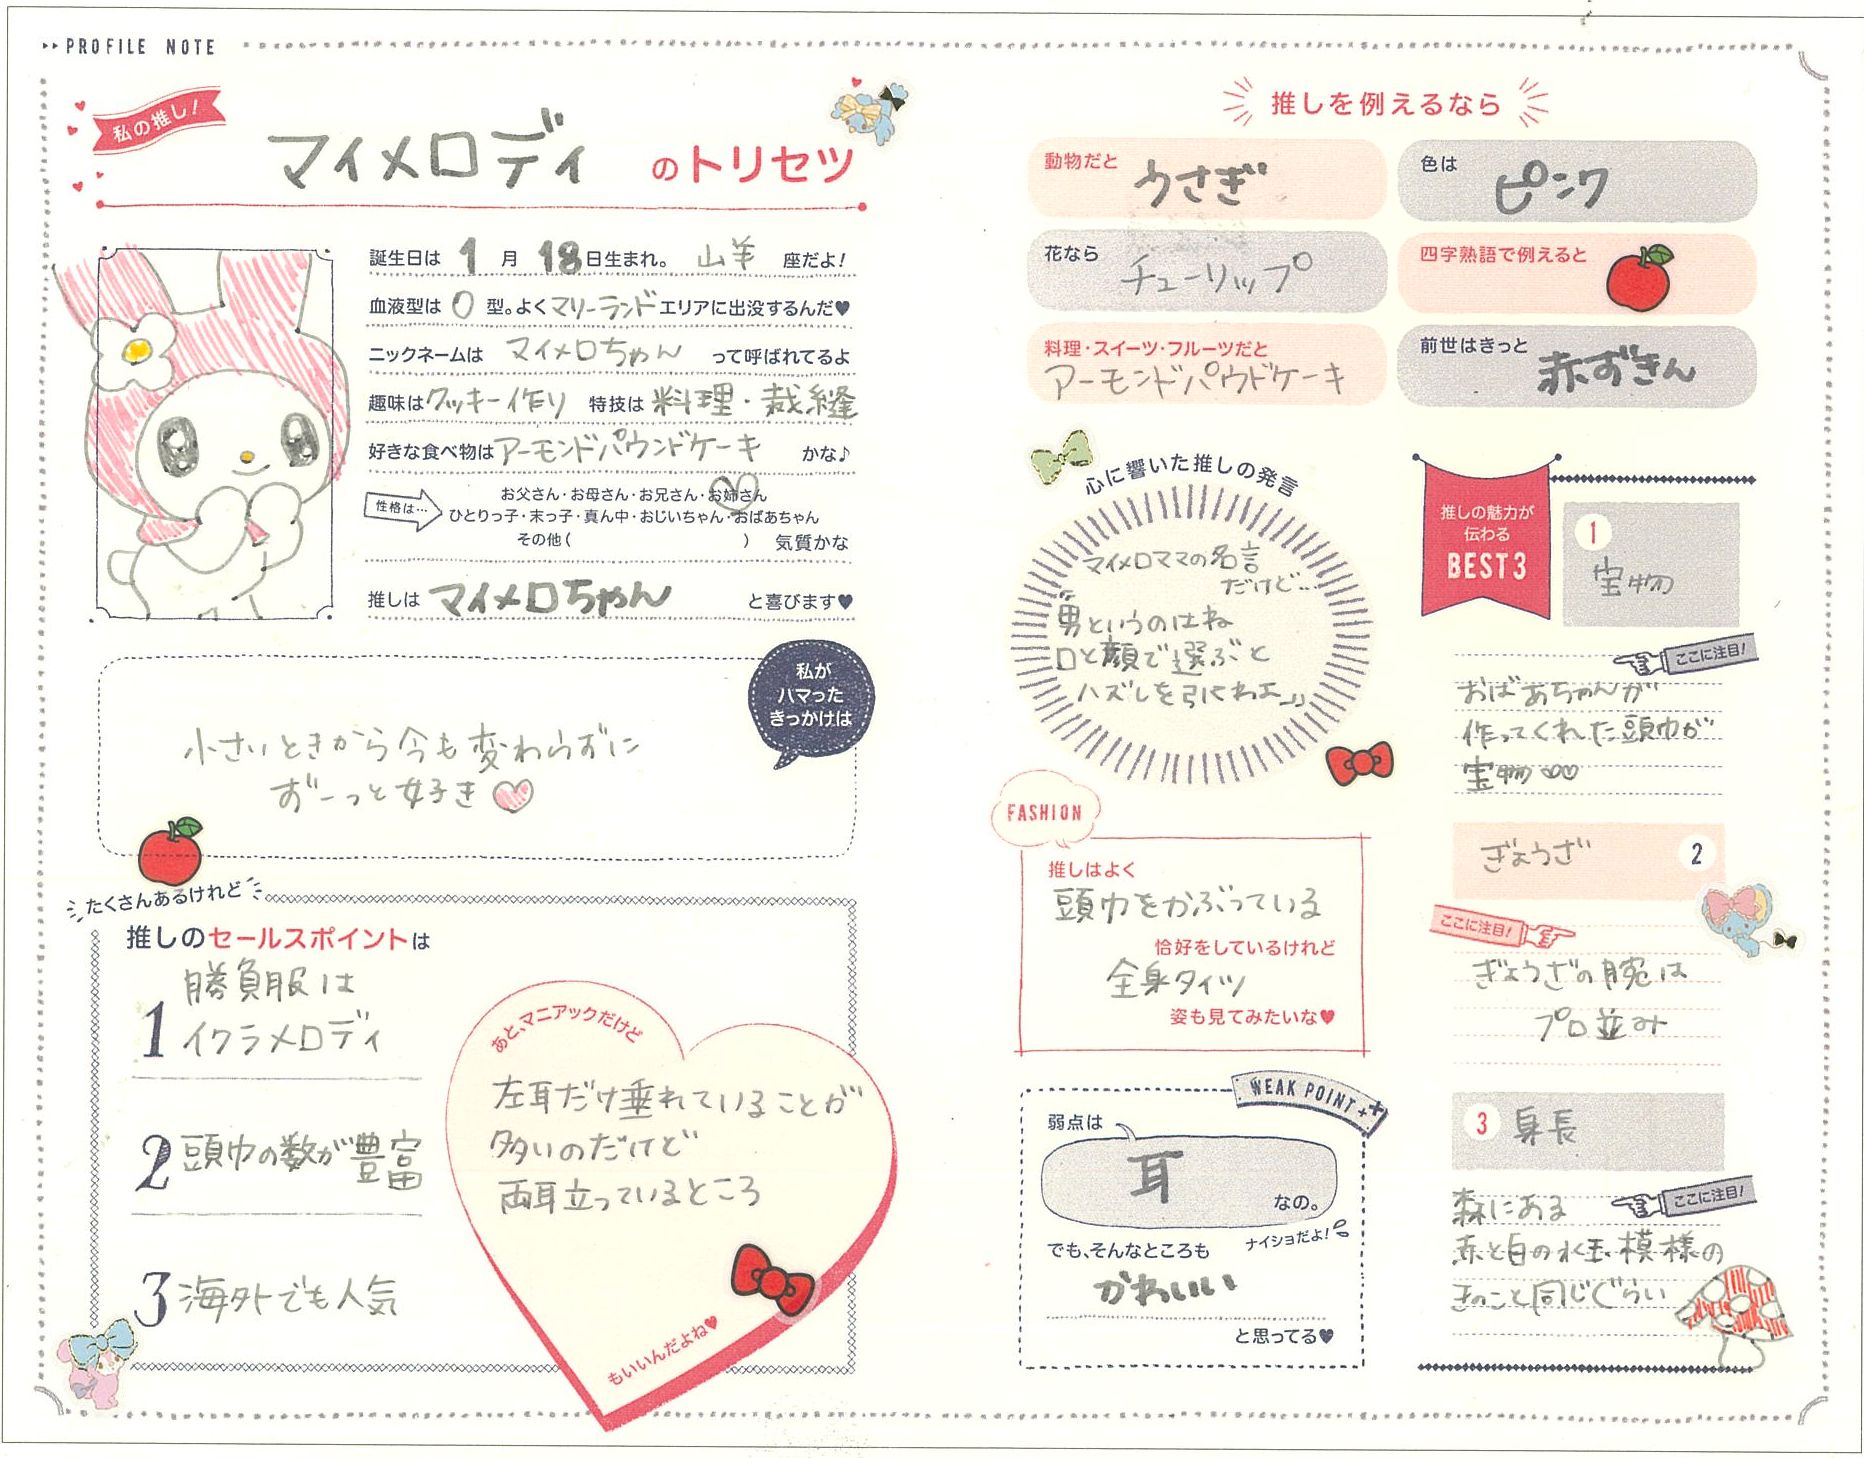 PROFILE NOTE
私の推し！
マイメロディ のトリセツ
誕生日は 1 月 18 日生まれ。 山羊 座だよ！
血液型は O 型。よく マリーランド エリアに出没するんだ♥
ニックネームは マイメロちゃん って呼ばれてるよ
趣味は クッキー作り 特技は 料理・裁縫
好きな食べ物は アーモンドパウンドケーキ かな♪
性格は…
お父さん・お母さん・お兄さん・お姉さん
ひとりっ子・末っ子・真ん中・おじいちゃん・おばあちゃん
その他（ ） 気質かな
推しは マイメロちゃん と喜びます♥
私が
ハマった
きっかけは
小さいときから今も変わらずに
ずーっと好き♡
たくさんあるけれど
推しのセールスポイントは
1 勝負服は
イクラメロディ
2 頭巾の数が豊富
3 海外でも人気
あと、マニアックだけど
左耳だけ垂れていることが
多いのだけど
両耳立っているところ
もいいんだよね♥
推しを例えるなら
動物だと うさぎ
色は ピンク
花なら チューリップ
四字熟語で例えると
料理・スイーツ・フルーツだと
アーモンドパウドケーキ
前世はきっと 赤ずきん
心に響いた推しの発言
マイメロママの名言
だけど…
〝男というのはね
口と顔で選ぶと
ハズレを引くわよ〟
FASHION
推しはよく
頭巾をかぶっている
恰好をしているけれど
全身タイツ
姿も見てみたいな♥
WEAK POINT ++
弱点は
耳 なの。
ナイショだよ！
でも、そんなところも
かわいい
と思ってる♥
推しの魅力が
伝わる
BEST3
1 宝物
ここに注目！
おばあちゃんが
作ってくれた頭巾が
宝物♡♡
ぎょうざ 2
ここに注目！
ぎょうざの腕は
プロ並み
3 身長
ここに注目！
森にある
赤と白の水玉模様の
きのこと同じぐらい